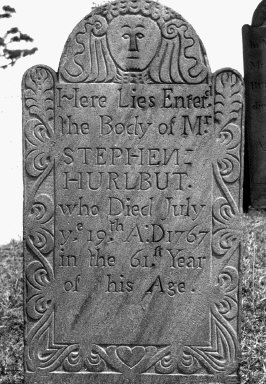 Here Lies Enterd
the Body of Mr
STEPHEN=
HURLBUT.
who Died July
ye 19th A:D 1767
in the 61st Year
of his Age.